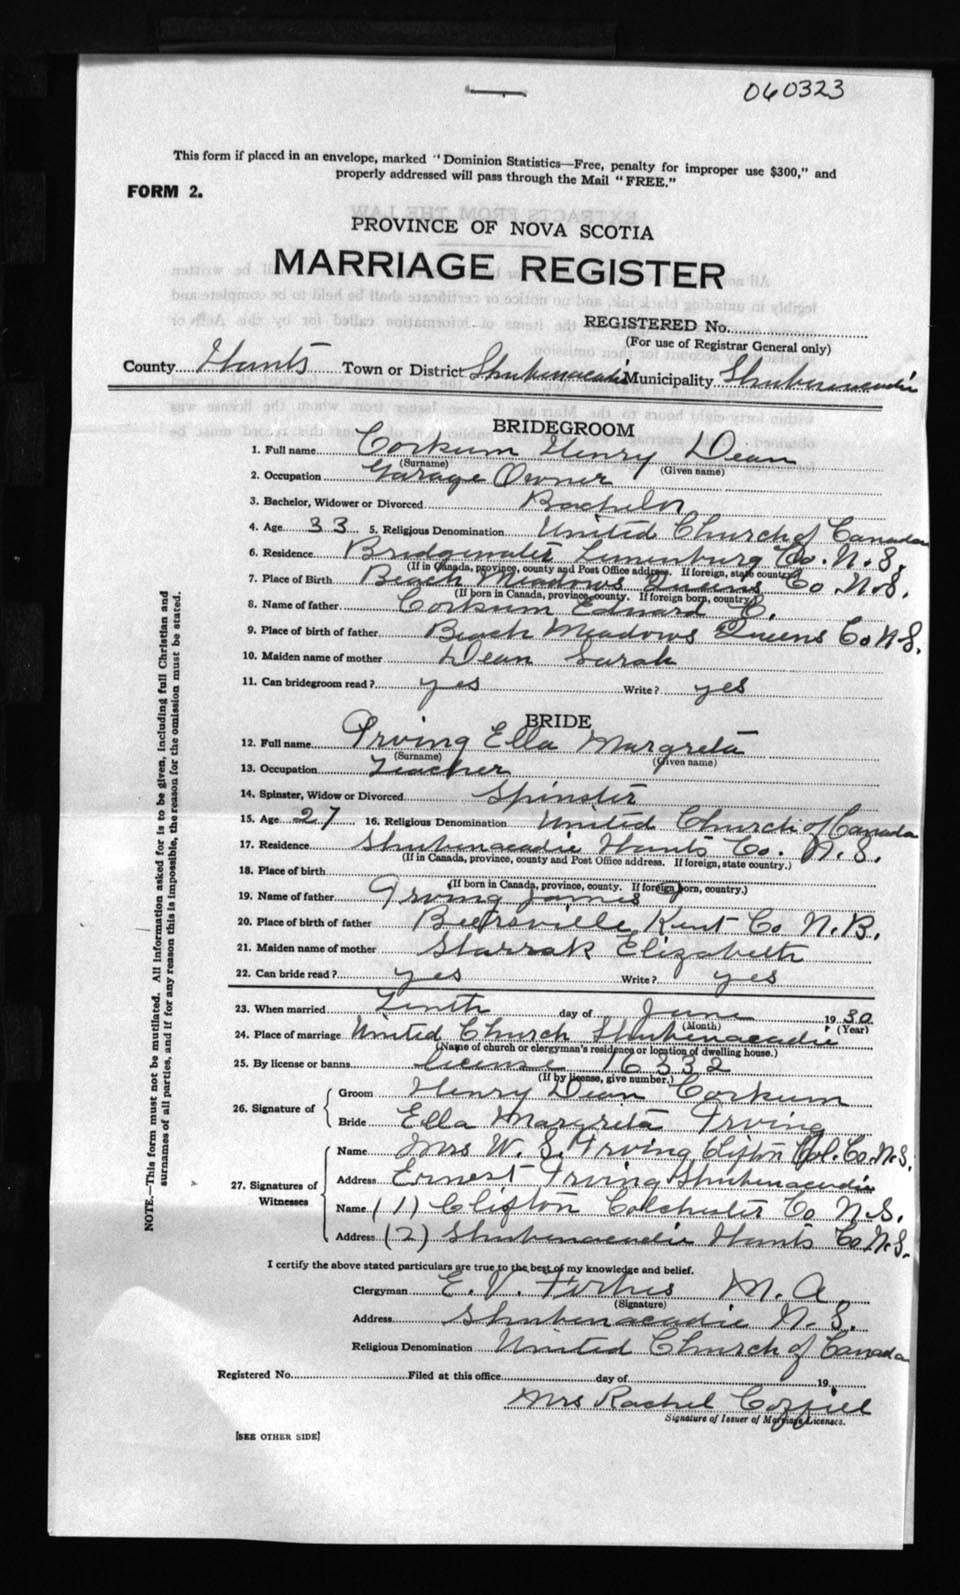 060323
This form if placed in an envelope, marked "Dominion Statistics—Free, penalty for improper use $300," and
properly addressed will pass through the Mail "FREE."
FORM 2.
PROVINCE OF NOVA SCOTIA
MARRIAGE REGISTER
REGISTERED No.
(For use of Registrar General only)
County Hants Town or District Shubenacadie Municipality Shubenacadie
BRIDEGROOM
1. Full name Corkum Henry Dean
(Surname) (Given name)
2. Occupation Garage Owner
3. Bachelor, Widower or Divorced Bachelor
4. Age 33 5. Religious Denomination United Church of Canada
6. Residence Bridgewater Lunenburg Co. N.S.
(If in Canada, province, county and Post Office address. If foreign, state country)
7. Place of Birth Beach Meadows Queens Co N.S.
(If born in Canada, province, county. If foreign born, country.)
8. Name of father Corkum Edward C.
9. Place of birth of father Beach Meadows Queens Co N.S.
10. Maiden name of mother Dean Sarah
11. Can bridegroom read? yes Write? yes
BRIDE
12. Full name Irving Ella Margreta
(Surname) (Given name)
13. Occupation Teacher
14. Spinster, Widow or Divorced Spinster
15. Age 27 16. Religious Denomination United Church of Canada
17. Residence Shubenacadie Hants Co. N.S.
(If in Canada, province, county and Post Office address. If foreign, state country.)
18. Place of birth
(If born in Canada, province, county. If foreign born, country.)
19. Name of father Irving James
20. Place of birth of father Beersville Kent Co N.B.
21. Maiden name of mother Starrak Elizabeth
22. Can bride read? yes Write? yes
23. When married Tenth day of June 1930
(Month) (Year)
24. Place of marriage United Church Shubenacadie
(Name of church or clergyman's residence or location of dwelling house.)
25. By license or banns license 16332
(If by license, give number.)
26. Signature of Groom Henry Dean Corkum
Bride Ella Margreta Irving
27. Signatures of Witnesses Name Mrs W. S. Irving Clifton Col. Co. N.S.
Address Ernest Irving Shubenacadie
Name (1) Clifton Colchester Co N.S.
Address (2) Shubenacadie Hants Co N.S.
I certify the above stated particulars are true to the best of my knowledge and belief.
Clergyman E. V. Forbes M.A.
(Signature)
Address Shubenacadie N.S.
Religious Denomination United Church of Canada
Registered No. Filed at this office day of 19
Mrs Rachel
Signature of Issuer of Marriage Licenses.
[SEE OTHER SIDE]
NOTE.—This form must not be mutilated. All information asked for is to be given, including full Christian and
surnames of all parties, and if for any reason this is impossible, the reason for the omission must be stated.